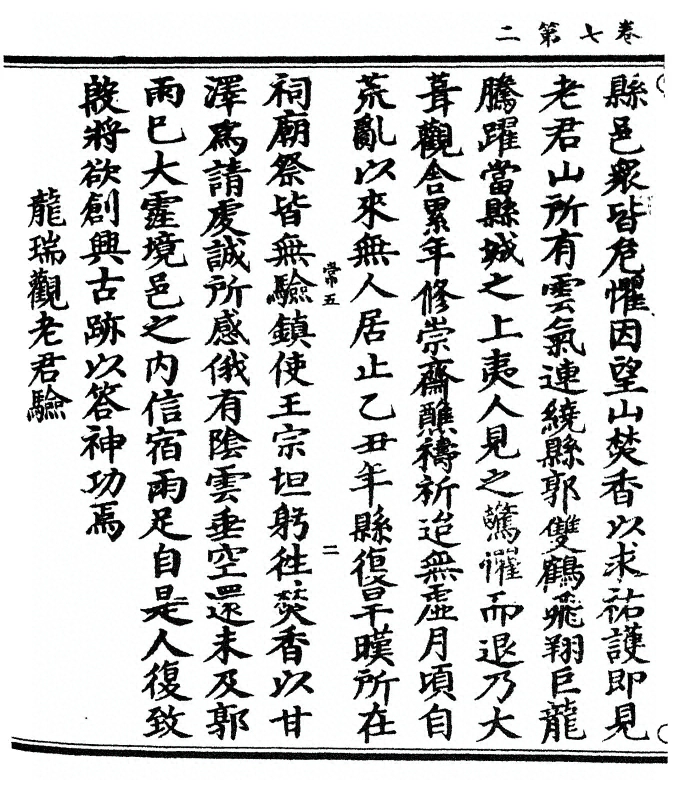 二第七卷
縣邑衆皆危懼因望山焚香以求祐護即見
老君山所有雲氣連繞縣郭雙鶴飛翔巨龍
騰躍當縣城之上夷人見之驚懼而退乃大
葺觀舍累年修崇齋醮禱祈迨無虛月頃自
荒亂以來無人居止乙丑年縣復旱暵所在
常五
二
祠廟祭皆無驗鎮使王宗坦躬往焚香以甘
澤爲請虔誠所感俄有陰雲垂空還未及郭
雨已大霔境邑之内信宿雨足自是人復致
敬將欲創興古跡以答神功焉
龍瑞觀老君驗